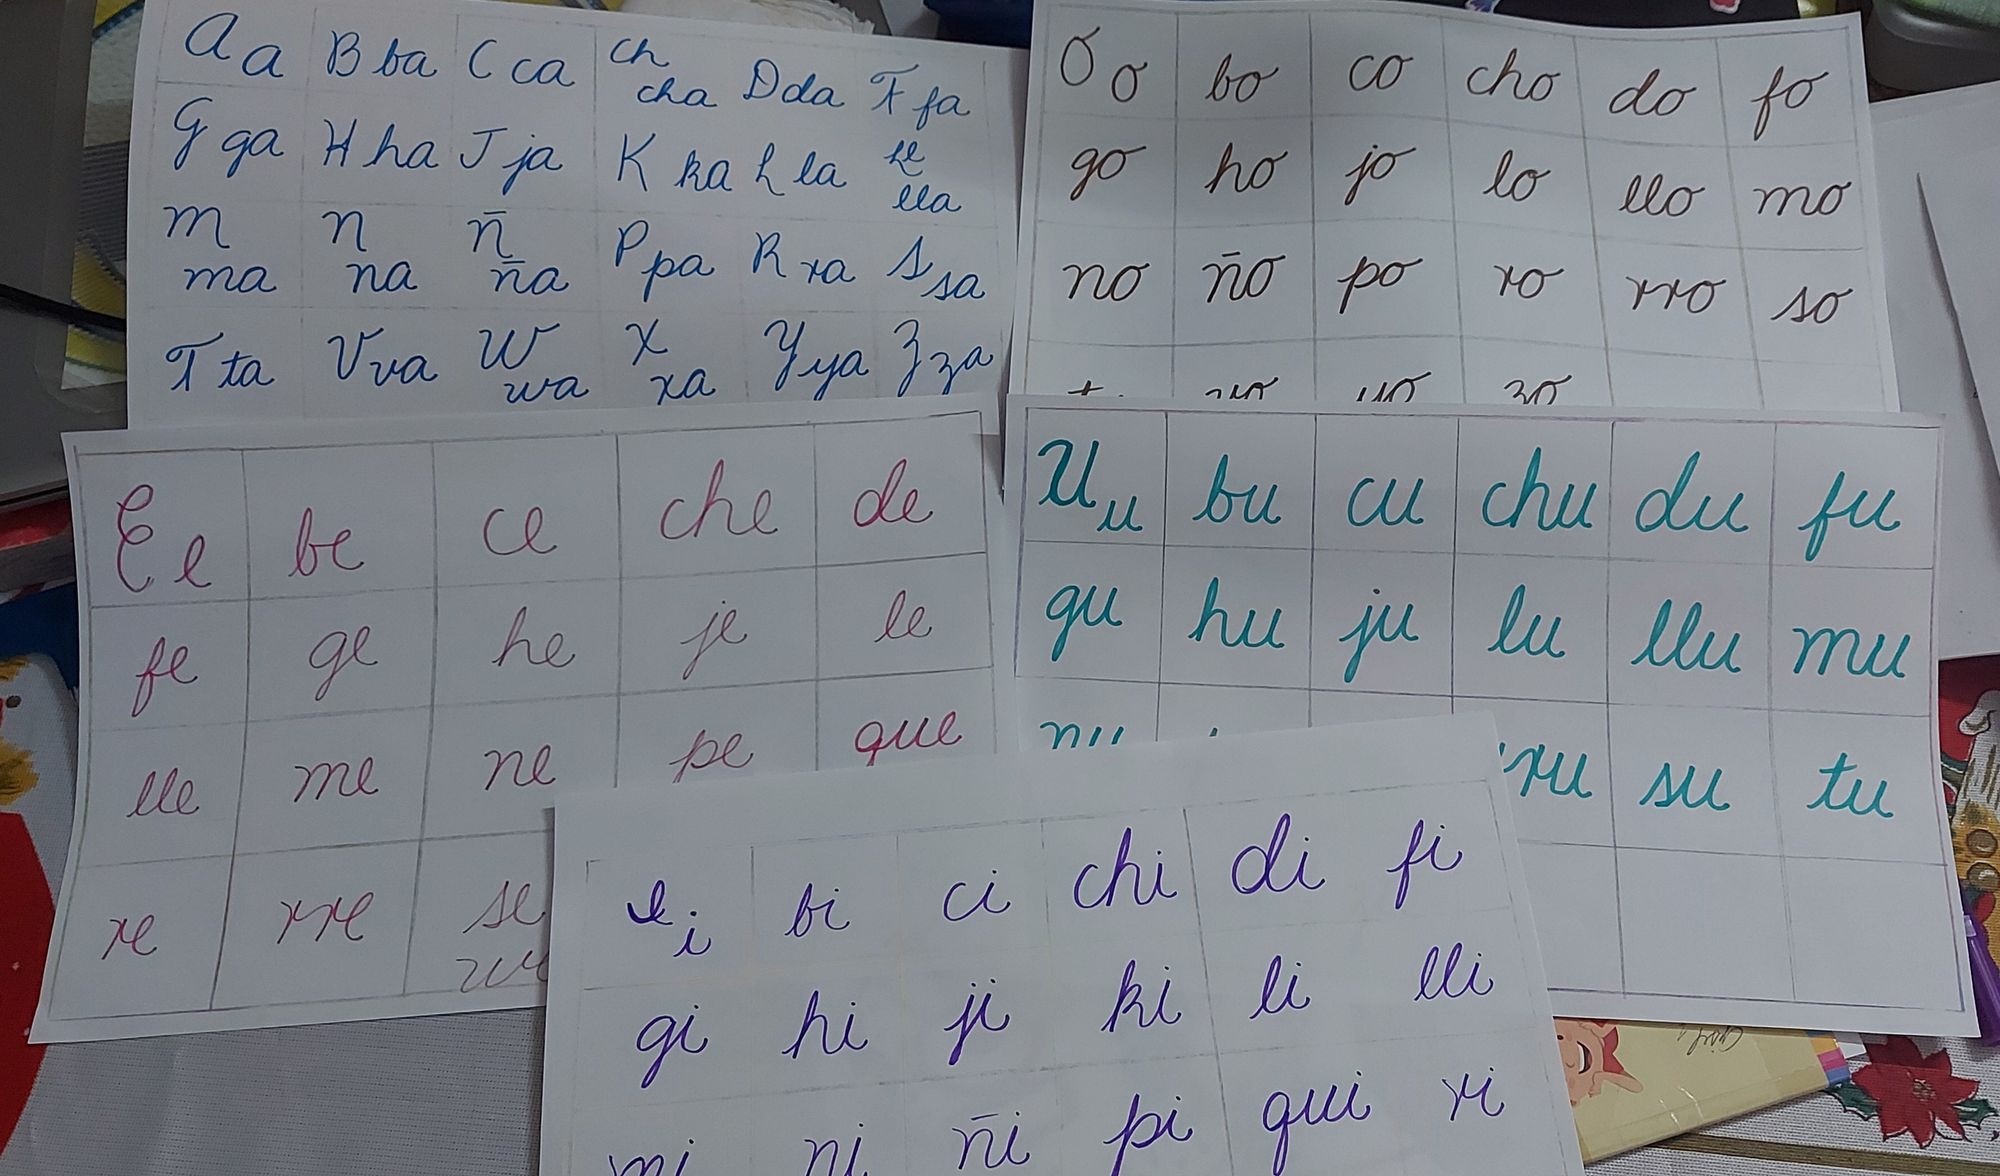 A a B ba C ca Ch cha D da F fa
G ga H ha J ja K ka L la Ll lla
M ma N na Ñ ña P pa R ra S sa
T ta V va W wa X xa Y ya Z za
O o bo co cho do fo
go ho jo lo llo mo
no ño po ro rro so
E e be ce che de
fe ge he je le
lle me ne pe que
re rre se
U u bu cu chu du fu
gu hu ju lu llu mu
nu rru su tu
i bi ci chi di fi
gi hi ji ki li lli
mi ni ñi pi qui ri